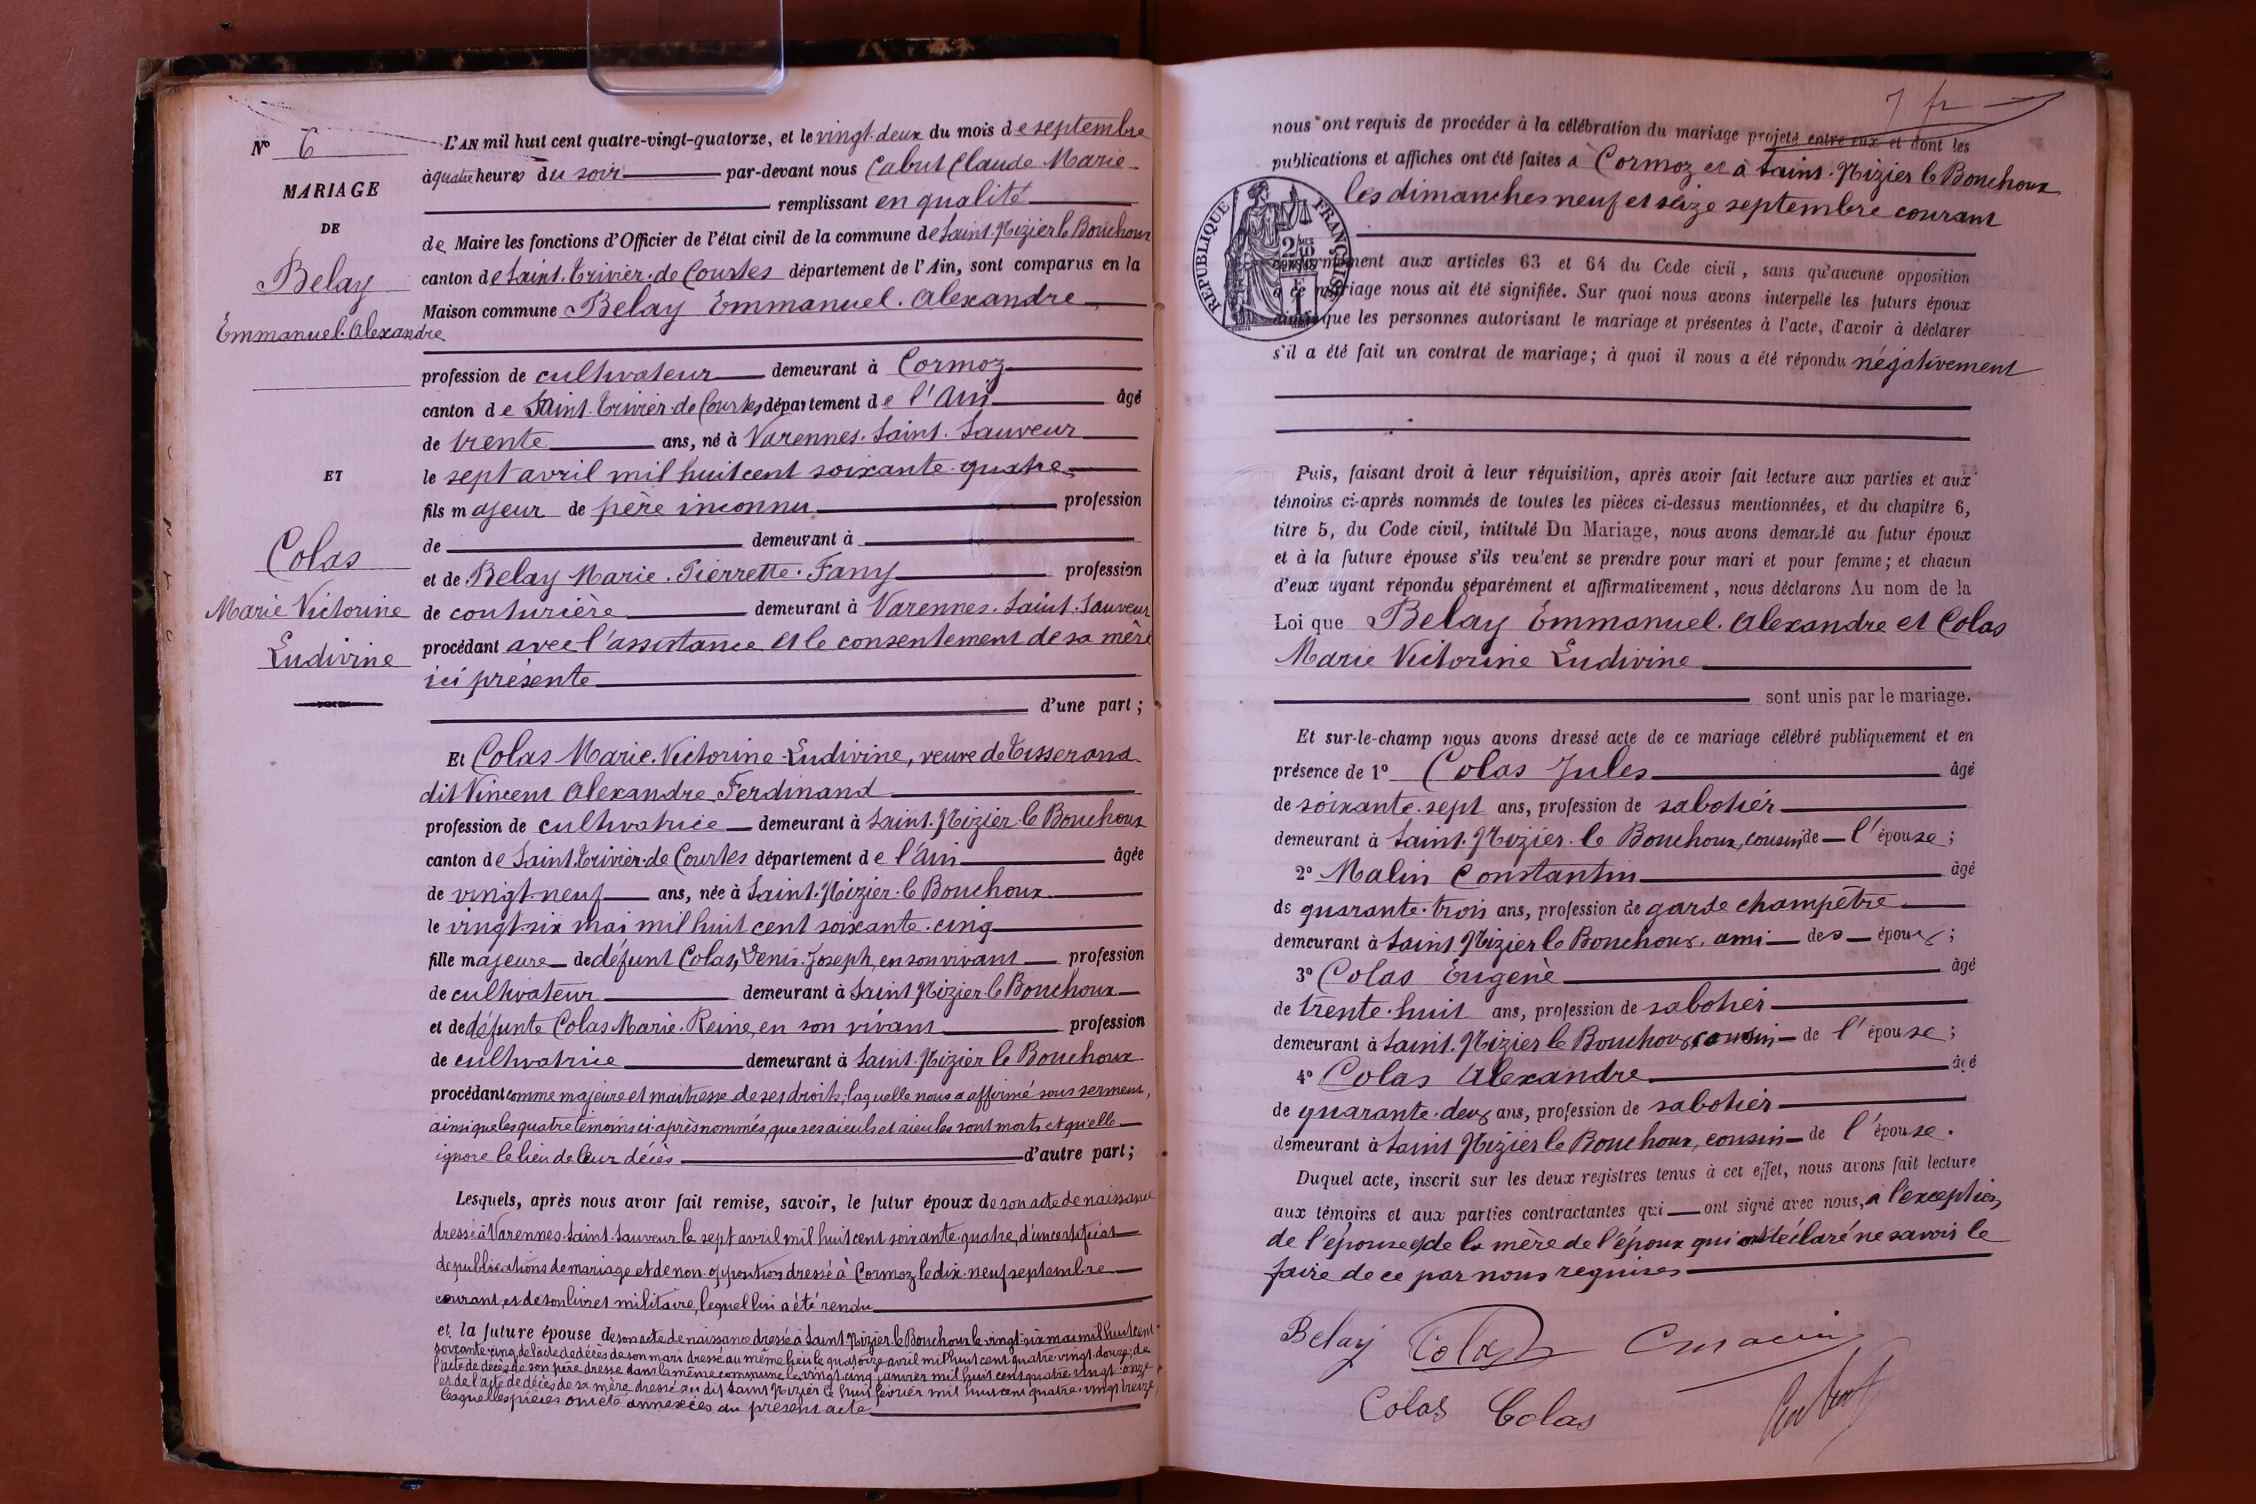 Nº 6
MARIAGE
DE
Belay
Emmanuel. Alexandre
ET
Colas
Marie Victorine
Ludivine
L'AN mil huit cent quatre-vingt-quatorze, et le vingt-deux du mois de septembre
à quatre heures du soir par-devant nous Cabut Claude Marie
remplissant en qualité
de Maire les fonctions d'Officier de l'état civil de la commune de Saint-Nizier le Bouchoux
canton de Saint-Trivier-de Courtes département de l'Ain, sont comparus en la
Maison commune Belay Emmanuel. Alexandre
profession de cultivateur demeurant à Cormoz
canton de Saint-Trivier-de Courtes département de l'Ain âgé
de trente ans, né à Varennes-Saint-Sauveur
le sept avril mil huit cent soixante-quatre
fils majeur de père inconnu profession
de demeurant à
et de Belay Marie-Pierrette-Fany profession
de couturière demeurant à Varennes-Saint-Sauveur
procédant avec l'assistance et le consentement de sa mère
ici présente
d'une part;
Et Colas Marie-Victorine-Ludivine, veuve de Tisserand
dit Vincent Alexandre Ferdinand
profession de cultivatrice demeurant à Saint-Nizier-le Bouchoux
canton de Saint-Trivier-de Courtes département de l'Ain âgée
de vingt-neuf ans, née à Saint-Nizier-le Bouchoux
le vingt-six mai mil huit cent soixante-cinq
fille majeure de défunt Colas, Denis-Joseph, en son vivant profession
de cultivateur demeurant à Saint Nizier le Bouchoux
et de défunte Colas Marie-Reine, en son vivant profession
de cultivatrice demeurant à Saint-Nizier le Bouchoux
procédant comme majeure et maîtresse de ses droits; laquelle nous a affirmé sous serment,
ainsi que les quatre témoins ci-après nommés, que ses aieuls et aieules sont morts et qu'elle
ignore le lieu de leur décès d'autre part;
Lesquels, après nous avoir fait remise, savoir, le futur époux de son acte de naissance
dressé à Varennes-Saint-Sauveur le sept avril mil huit cent soixante-quatre, d'un certificat
de publications de mariage et de non-opposition dressé à Cormoz le dix-neuf septembre
courant, et de son livret militaire, lequel lui a été rendu
et la future épouse de son acte de naissance dressé à Saint Nizier le Bouchoux le vingt-six mai mil huit cent
soixante-cinq, de l'acte de décès de son mari dressé au même lieu le quatorze avril mil huit cent quatre-vingt-douze; de
l'acte de décès de son père dressé dans la même commune le vingt-cinq janvier mil huit cent quatre-vingt-onze
et de l'acte de décès de sa mère dressé au dit Saint Nizier le huit février mil huit cent quatre-vingt treize
lesquelles pièces ont été annexées au présent acte
7 fr
nous ont requis de procéder à la célébration du mariage projeté entre eux et dont les
publications et affiches ont été faites à Cormoz et à Saint-Nizier le Bouchoux
les dimanches neuf et seize septembre courant
RÉPUBLIQUE FRANÇAISE
conformément aux articles 63 et 64 du Code civil, sans qu'aucune opposition
à ce mariage nous ait été signifiée. Sur quoi nous avons interpellé les futurs époux
ainsi que les personnes autorisant le mariage et présentes à l'acte, d'avoir à déclarer
s'il a été fait un contrat de mariage; à quoi il nous a été répondu négativement
Puis, faisant droit à leur réquisition, après avoir fait lecture aux parties et aux
témoins ci-après nommés de toutes les pièces ci-dessus mentionnées, et du chapitre 6,
titre 5, du Code civil, intitulé Du Mariage, nous avons demandé au futur époux
et à la future épouse s'ils veulent se prendre pour mari et pour femme; et chacun
d'eux ayant répondu séparément et affirmativement, nous déclarons Au nom de la
Loi que Belay Emmanuel. Alexandre et Colas
Marie Victorine Ludivine
sont unis par le mariage.
Et sur-le-champ nous avons dressé acte de ce mariage célébré publiquement et en
présence de 1º Colas Jules âgé
de soixante-sept ans, profession de sabotier
demeurant à Saint-Nizier-le Bouchoux, cousin de l'épouse;
2º Malin Constantin âgé
de quarante-trois ans, profession de garde champêtre
demeurant à Saint Nizier le Bouchoux, ami des époux;
3º Colas Eugène âgé
de trente-huit ans, profession de sabotier
demeurant à Saint-Nizier le Bouchoux, cousin de l'épouse;
4º Colas Alexandre âgé
de quarante-deux ans, profession de sabotier
demeurant à Saint Nizier le Bouchoux, cousin de l'épouse.
Duquel acte, inscrit sur les deux registres tenus à cet effet, nous avons fait lecture
aux témoins et aux parties contractantes qui ont signé avec nous, à l'exception
de l'épouse et de la mère de l'époux qui ont déclaré ne savoir le
faire de ce par nous requises
Belay Colas
Colas Colas